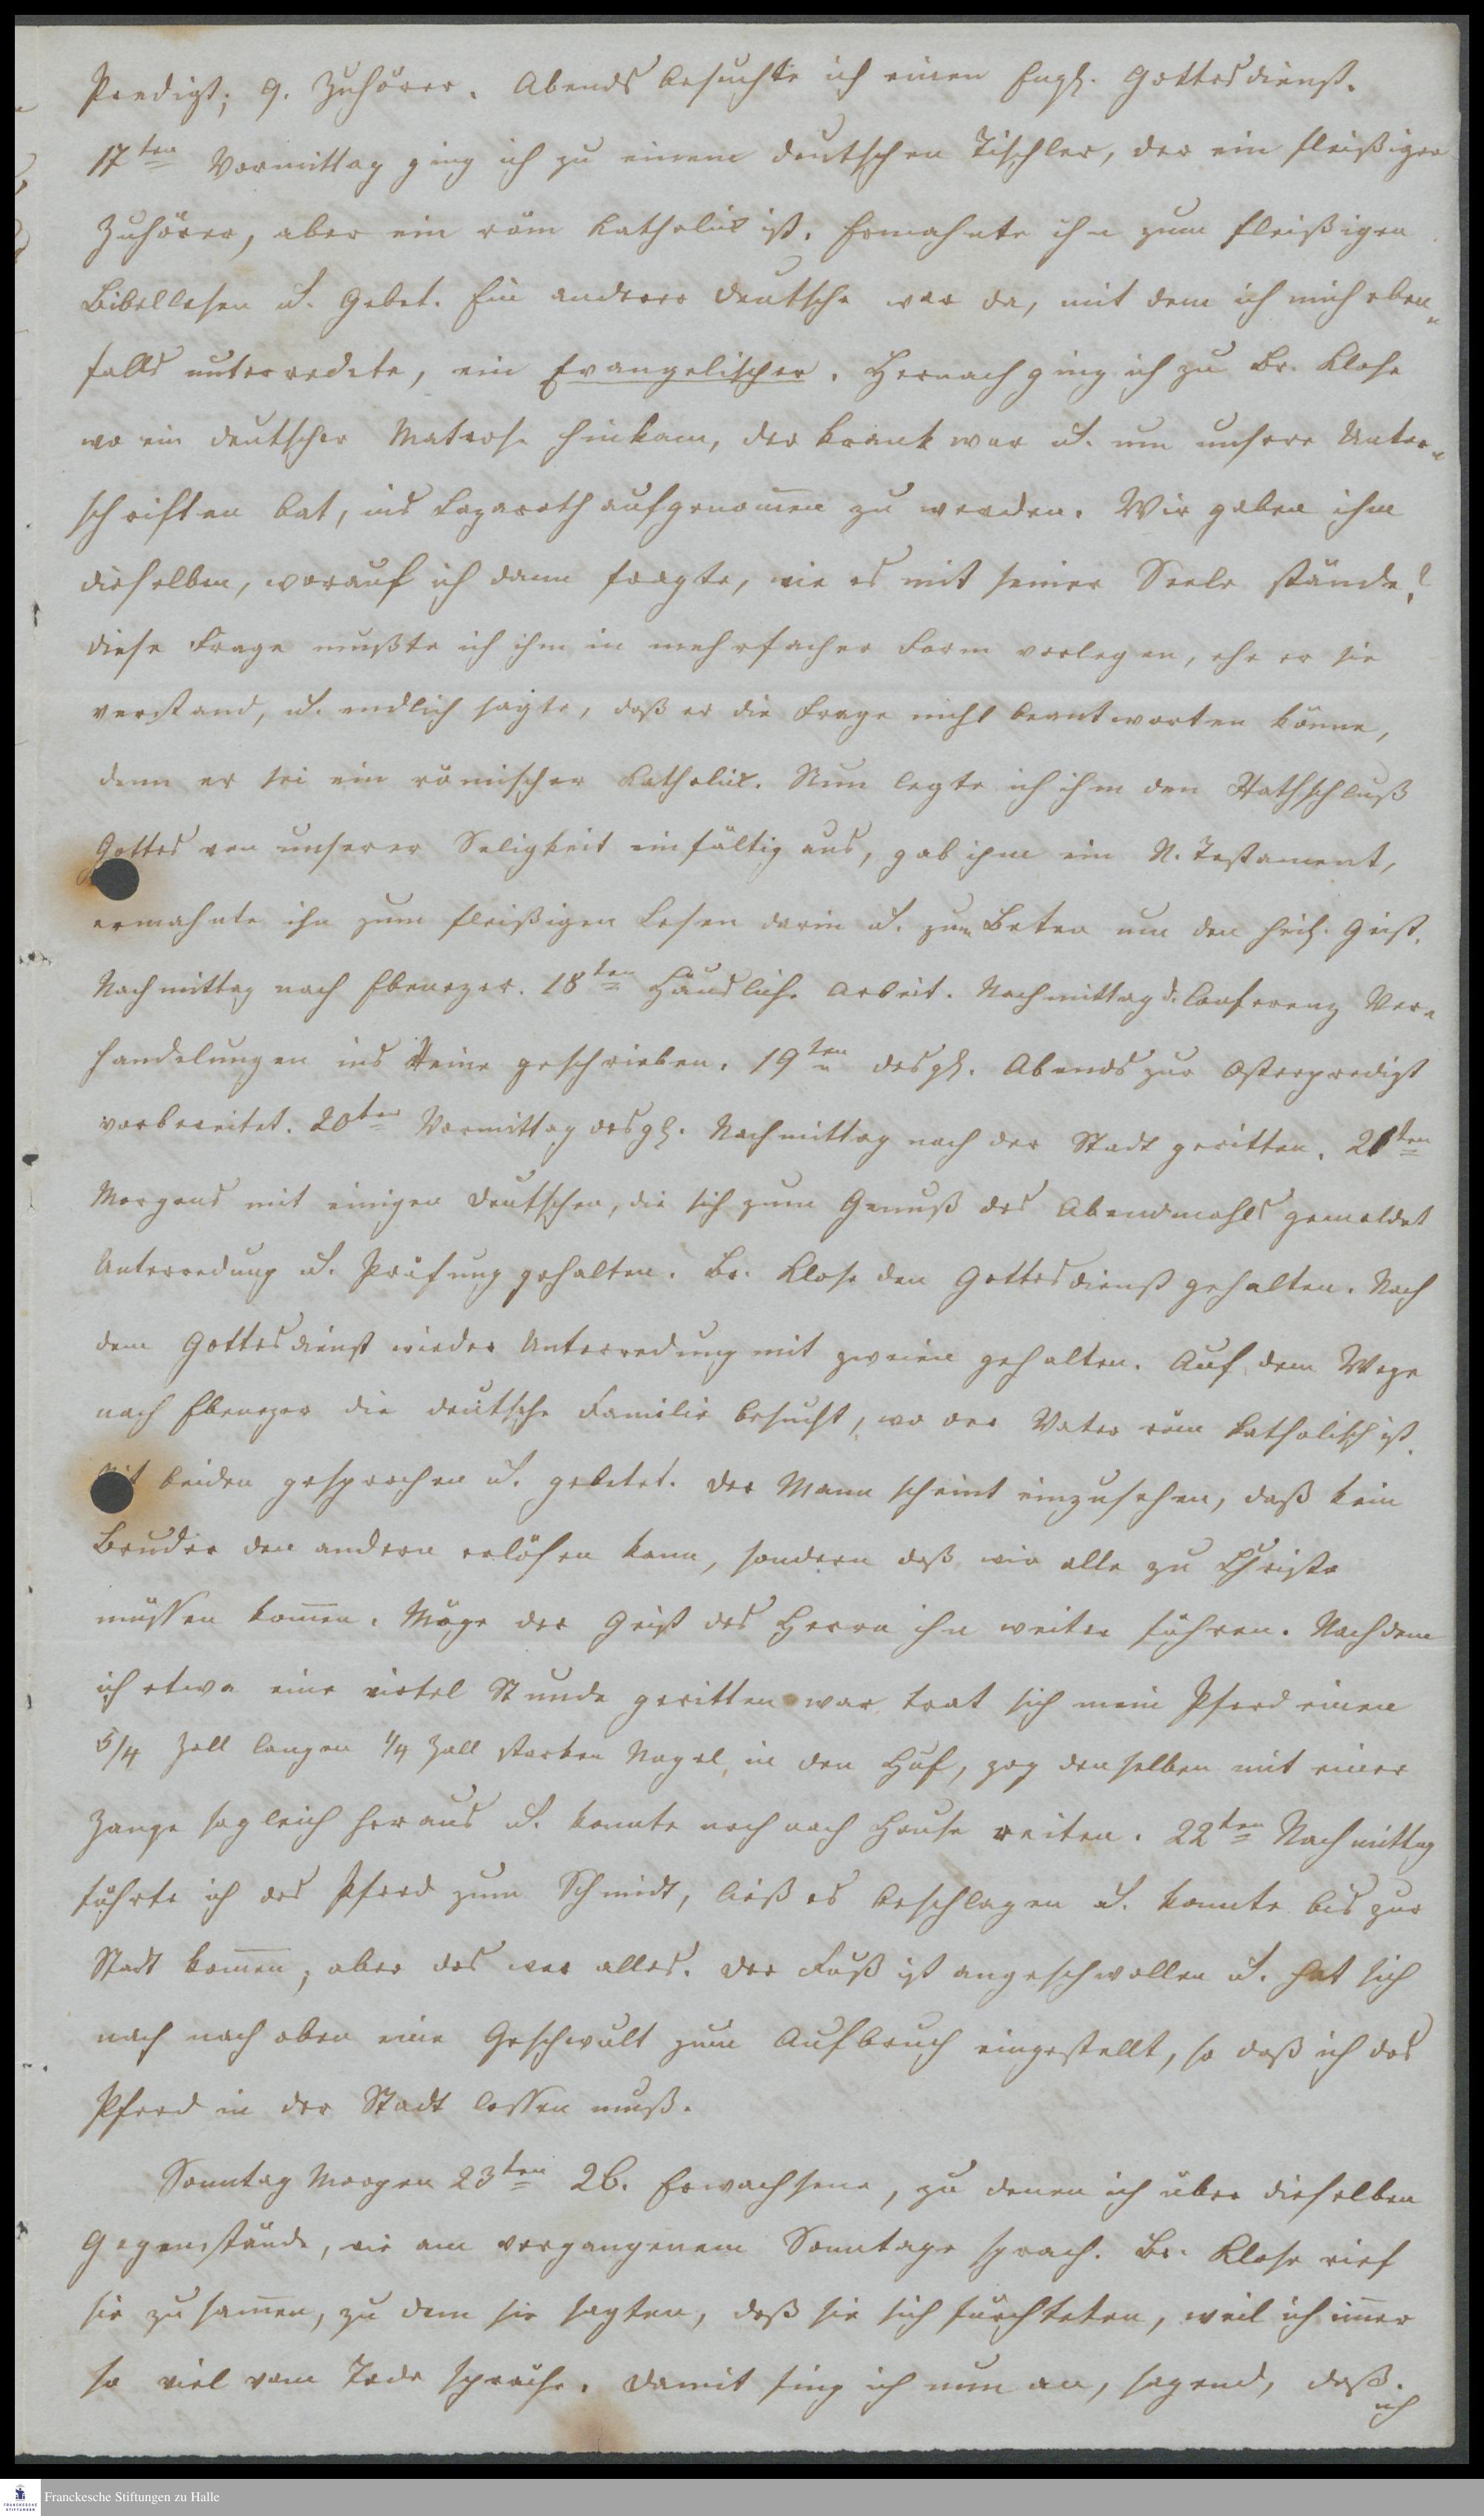 Predigt; 9. Zuhörer. Abends besuchte ich einen Engl. Gottesdienst.
17ten Vormittag ging ich zu einem deutschen Tischler, der ein fleißiger
Zuhörer, aber ein röm Katholik ist. Ermahnte ihn zum fleißigen
Bibellesen u. Gebet. Ein anderer Deutsche war da, mit dem ich mich eben-
falls unterredete, ein Evangelischer. Hernach ging ich zu Br. Klose
wo ein deutscher Matrose hinkam, der krank war u. um unsere Unter-
schriften bat, ins Lazareth aufgenom̅en zu werden. Wir gaben ihm
dieselben, worauf ich dann fragte, wie es mit seiner Seele stände?
diese Frage mußte ich ihm in mehrfacher Form vorlegen, ehe er sie
verstand, u. endlich sagte, daß er die Frage nicht beantworten könne,
denn er sei ein römischer Katholik. Nun legte ich ihm den Rathschluß
Gottes von unserer Seligkeit einfältig aus, gab ihm ein N. Testament,
ermahnte ihn zum fleißigen Lesen darin u. zum Beten um den heil. Geist.
Nachmittag nach Ebenezer. 18ten Häusliche Arbeit. Nachmittag d. Conferenz Ver-
handelungen ins Reine geschrieben. 19ten desgl. Abends zur Osterpredigt
vorbereitet. 20ten Vormittag desgl. Nachmittag nach der Stadt geritten. 21ten
Morgens mit einigen Deutschen, die sich zum Genuß des Abendmahls gemeldet
Unterredung u. Prüfung gehalten. Br. Klose den Gottesdienst gehalten. Nach
dem Gottesdienst wieder Unterredung mit zweien gehalten. Auf dem Wege
nach Ebenezer die deutsche Familie besucht, wo der Vater röm katholisch ist.
Mit beiden gesprochen u. gebetet. Der Mann scheint einzusehen, daß kein
Bruder den andern erlösen kann, sondern daß wir alle zu Christo
müssen kom̅en. Möge der Geist des Herrn ihn weiter führen. Nachdem
ich etwa eine viertel Stunde geritten war trat sich mein Pferd einen
5/4 Zoll langen 1/4 Zoll starken Nagel, in den Huf, zog denselben mit einer
Zange sogleich heraus u. konnte noch nach Hause reiten. 22ten Nachmittag
führte ich das Pferd zum Schmidt, ließ es beschlagen u. konnte bis zur
Stadt kom̅en, aber das war alles. Der Fuß ist angeschwollen u. hat sich
nach nach oben eine Geschwult zum Aufbruch eingestellt, so daß ich das
Pferd in der Stadt lassen muß.
Sonntag Morgen 23ten 26. Erwachsene, zu denen ich über dieselben
Gegenstände, wie am vergangenem Sonntage sprach. Br. Klose rief
sie zusam̅en, zu dem sie sagten, daß sie sich fürchteten, weil ich im̅er
so viel vom Tode spräche. Damit fing ich nun an, sagend, daß
ich
Franckesche Stiftungen zu Halle